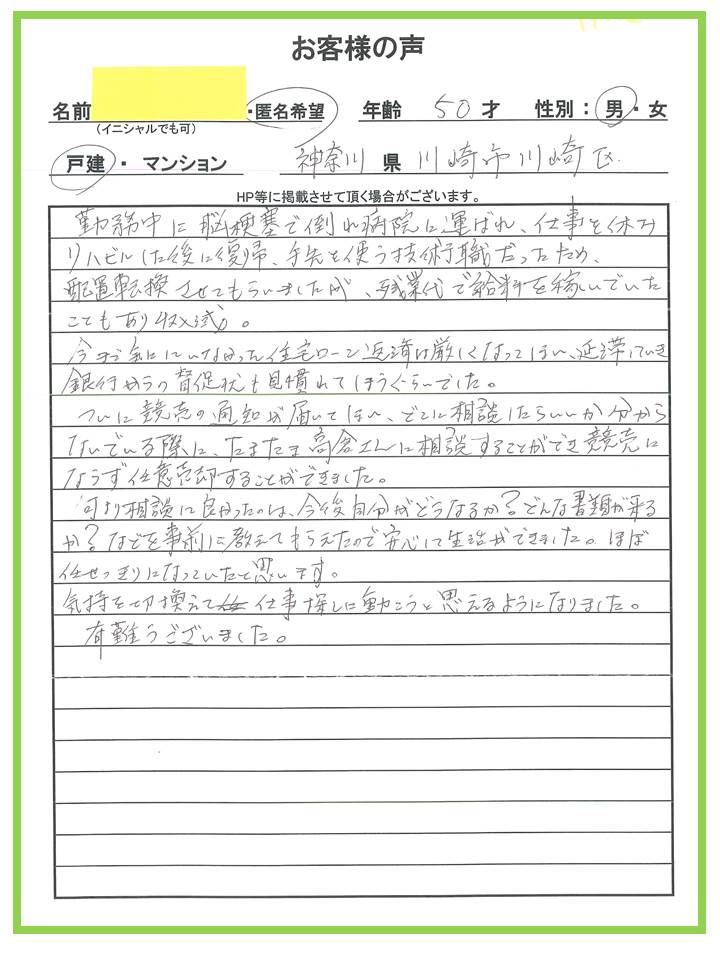 お客様の声
名前 ・匿名希望 年齢 50才 性別：男・女
（イニシャルでも可）
戸建・マンション 神奈川県川崎市川崎区
HP等に掲載させて頂く場合がございます。
勤務中に脳梗塞で倒れ病院に運ばれ、仕事を休み
リハビリした後に復帰、手先を使う技術職だったため、
配置転換させてもらいましたが、残業代で給料を稼いでいた
こともあり収入減。
今まで気にしていなかった住宅ローン返済は厳しくなってしまい、延滞していき
銀行からの督促状も見慣れてしまうぐらいでした。
ついに競売の通知が届いてしまい、どこに相談したらいいか分から
ないでいる際に、たまたま高倉さんに相談することができ競売に
ならず任意売却することができました。
何より相談に良かったのは、今後自分がどうなるか？どんな書類が来る
か？などを事前に教えてもらえたので安心して生活ができました。ほぼ
任せっきりになっていたと思います。
気持を切換えて仕事探しに動こうと思えるようになりました。
有難うございました。